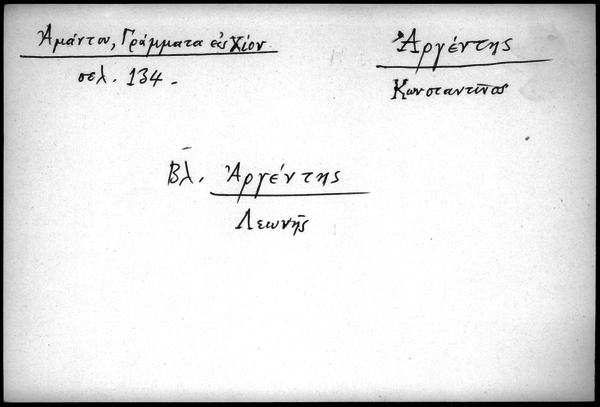 Ἀμάντου, Γράμματα εἰς Χίον
σελ. 134.
Ἀργέντης
Κωνσταντῖνος
Βλ. Ἀργέντης
Λεωνῆς